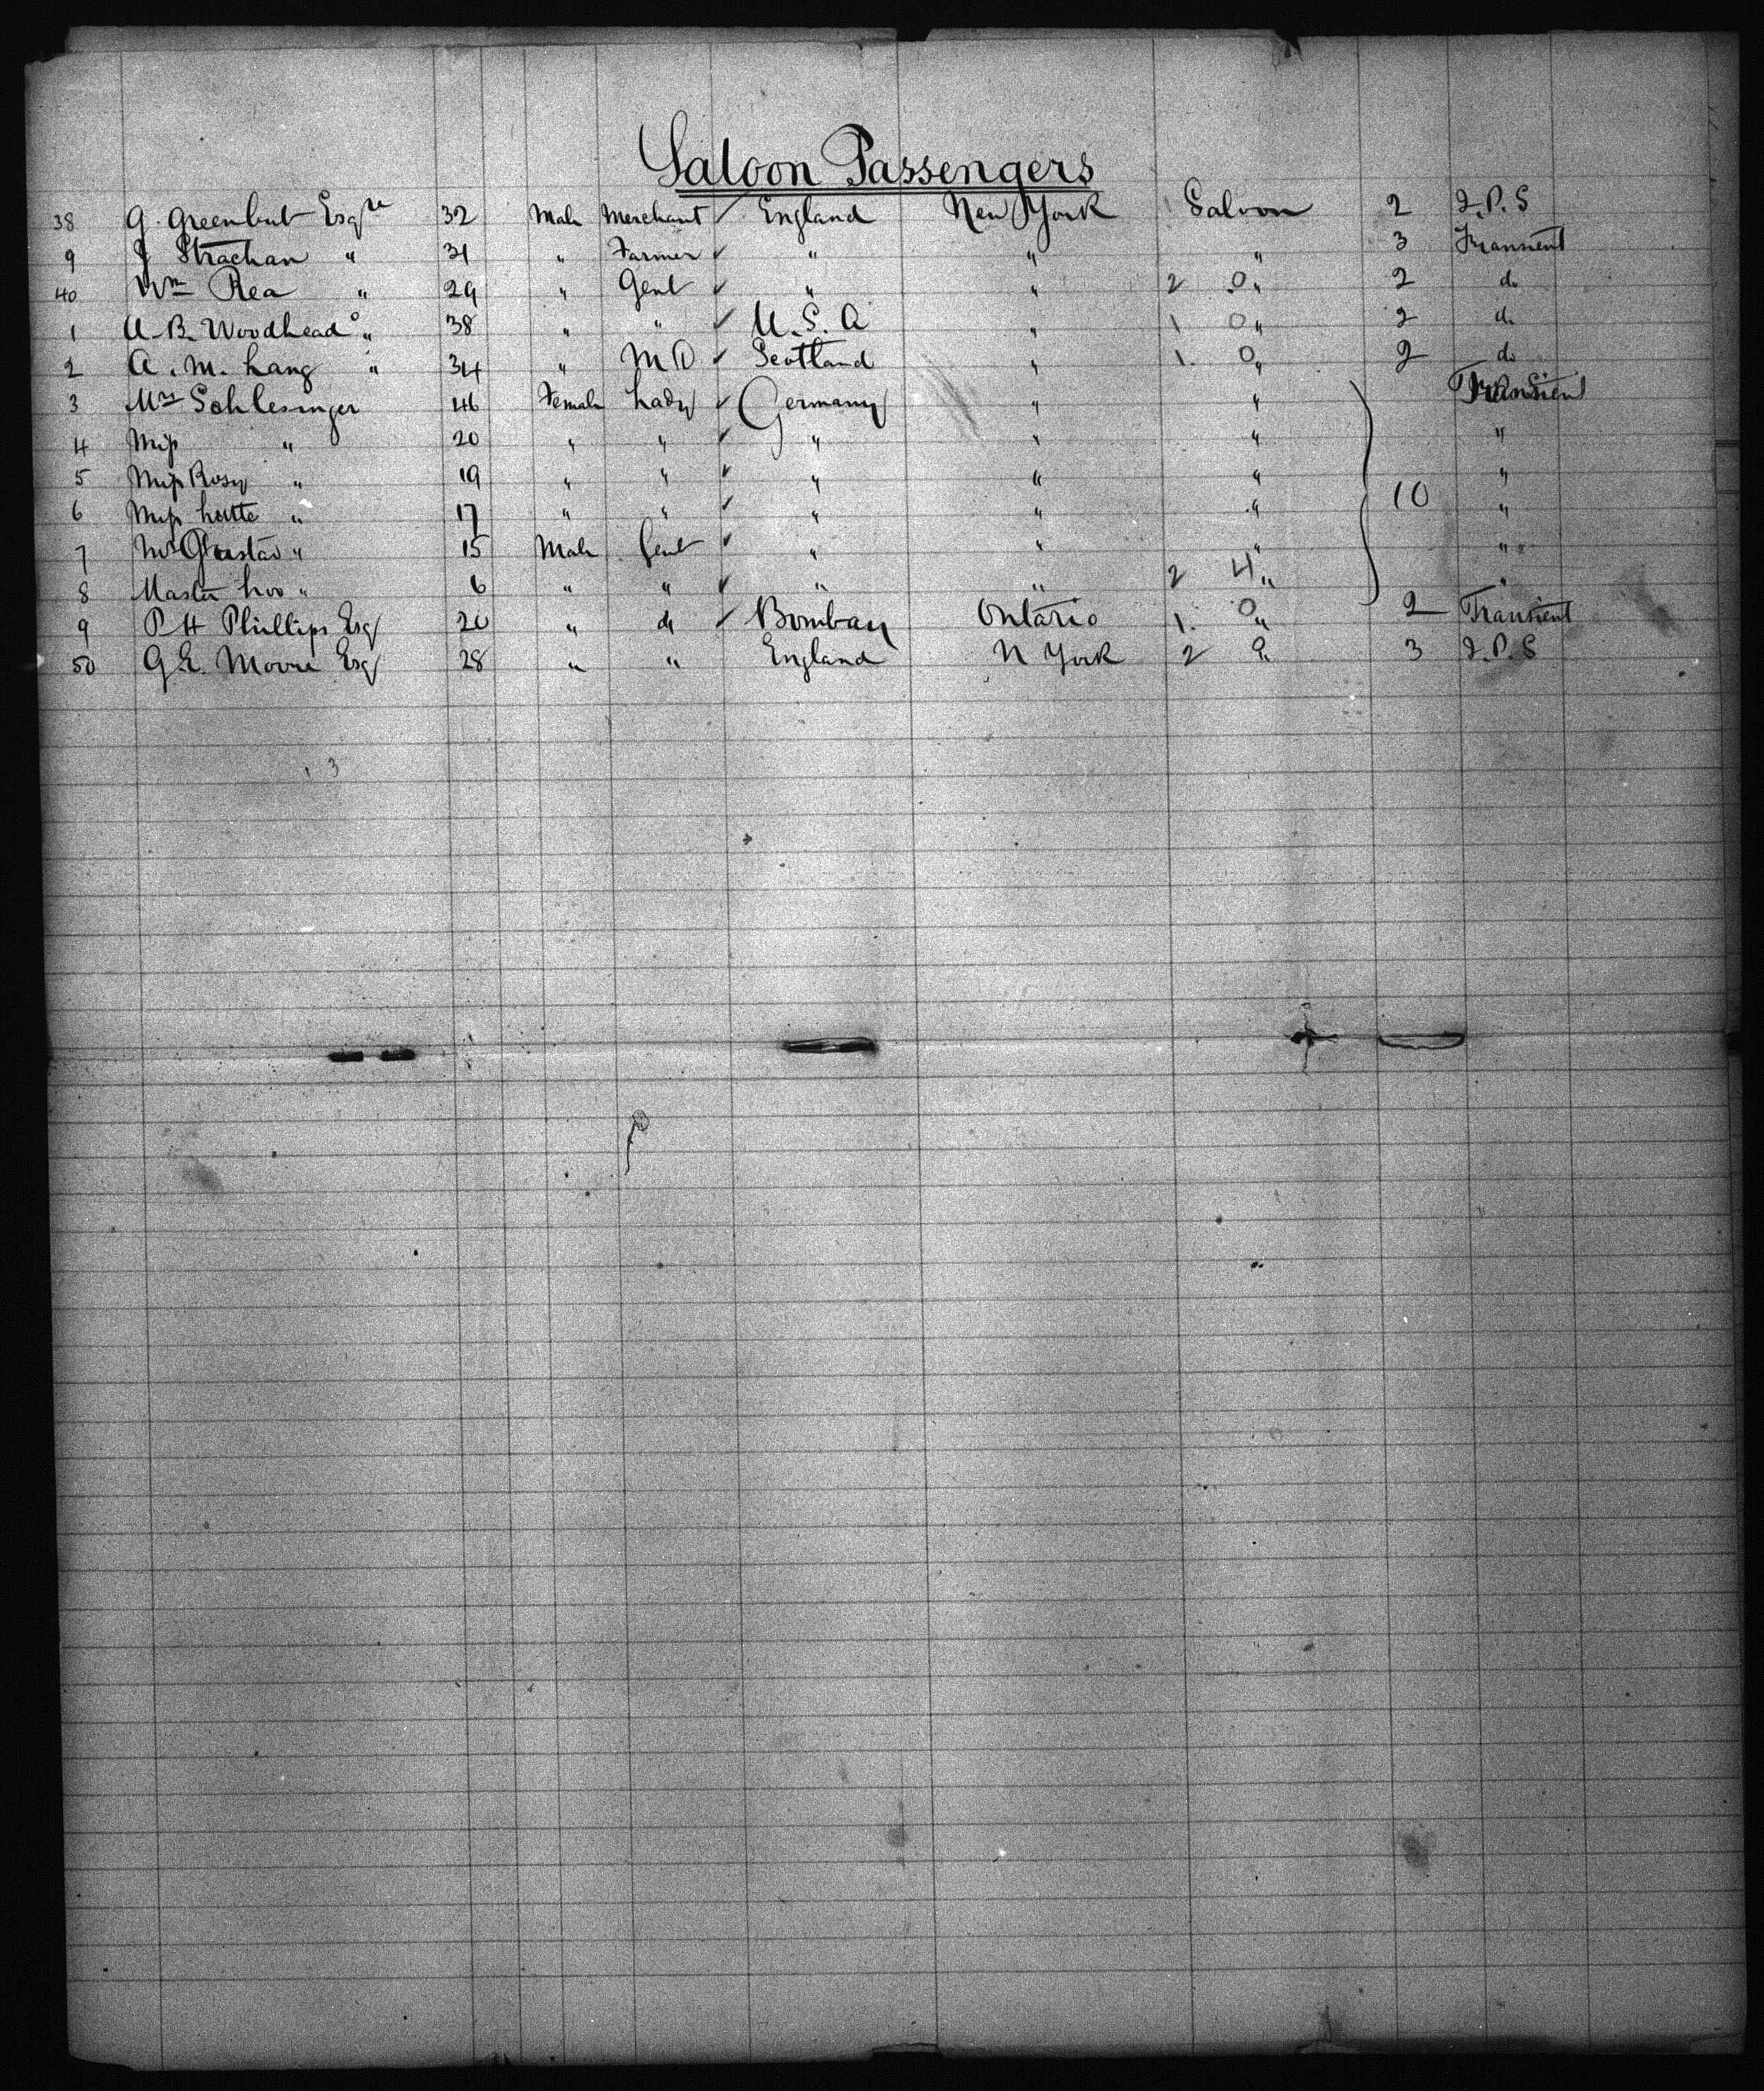 Saloon Passengers
38 G. Greenbut Esqre 32 Male Merchant ✓ England New York Saloon 2 I.P.S
9 J Strachan " 31 " Farmer ✓ " " " 3 Transient
40 Wm Rea " 29 " Gent ✓ " " 2 0 " 2 do
1 A. B. Woodhead " 38 " " ✓ U. S. A " 1 0 " 2 do
2 A. M. Lang " 34 " M D ✓ Scotland " 1. 0 " 2 do
3 Mrs Schlesinger 46 Female Lady ✓ Germany " " Transient
4 Miss " 20 " " ✓ " " " "
5 Miss Rosy " 19 " " ✓ " " " "
6 Miss " 17 " " ✓ " " " 10 "
7 Mr Gustav " 15 Male Gent ✓ " " " "
8 Master " 6 " " ✓ " " 2 4 " "
9 P H Phillips Esq 20 " do ✓ Bombay Ontario 1. 0 " 2 Transient
50 G. E. Moore Esq 28 " " England N York 2 3 I.P.S